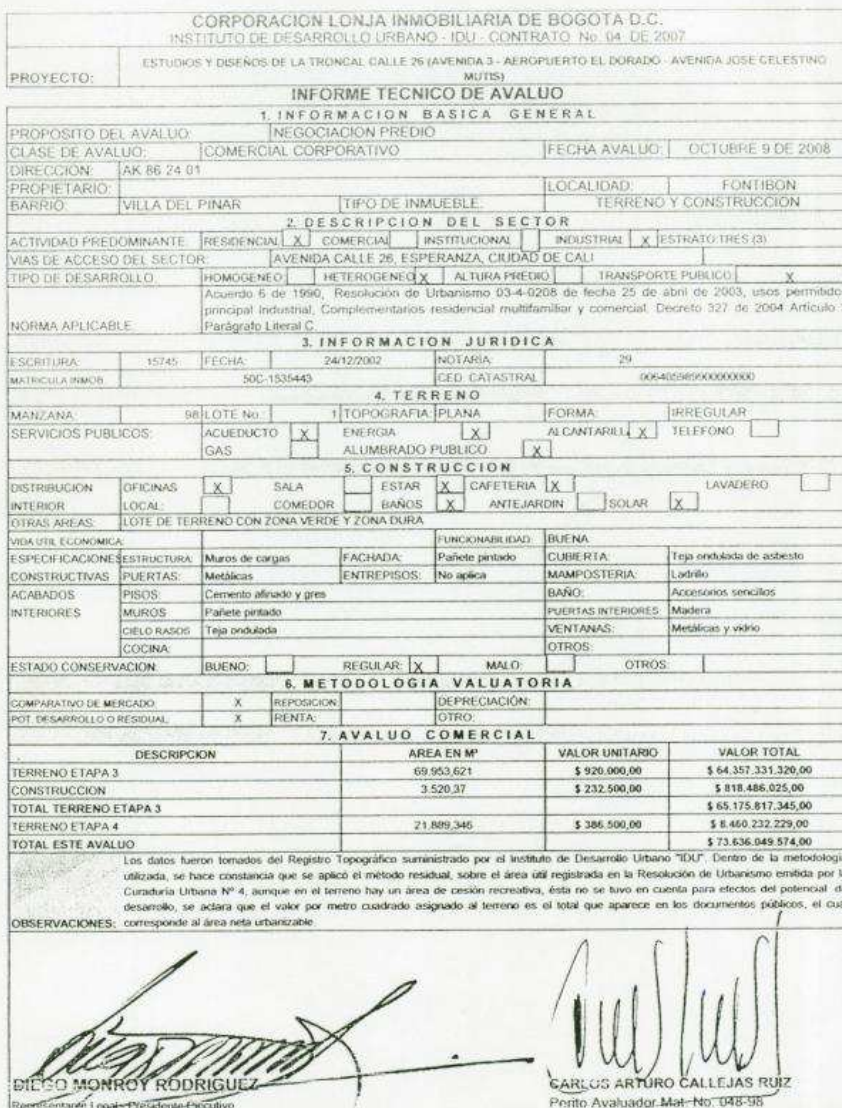 CORPORACION LONJA INMOBILIARIA DE BOGOTA D.C.
INSTITUTO DE DESARROLLO URBANO - IDU - CONTRATO No. 04 DE 2007
PROYECTO: ESTUDIOS Y DISEÑOS DE LA TRONCAL CALLE 26 (AVENIDA 3 - AEROPUERTO EL DORADO - AVENIDA JOSE CELESTINO
MUTIS)
INFORME TECNICO DE AVALUO
1. INFORMACION BASICA GENERAL
PROPOSITO DEL AVALUO: NEGOCIACION PREDIO
CLASE DE AVALUO: COMERCIAL CORPORATIVO FECHA AVALUO: OCTUBRE 9 DE 2008
DIRECCION: AK 86 24 01
PROPIETARIO: LOCALIDAD: FONTIBON
BARRIO: VILLA DEL PINAR TIPO DE INMUEBLE: TERRENO Y CONSTRUCCION
2. DESCRIPCION DEL SECTOR
ACTIVIDAD PREDOMINANTE RESIDENCIAL X COMERCIAL INSTITUCIONAL INDUSTRIAL X ESTRATO: TRES (3)
VIAS DE ACCESO DEL SECTOR: AVENIDA CALLE 26, ESPERANZA, CIUDAD DE CALI
TIPO DE DESARROLLO HOMOGENEO HETEROGENEO X ALTURA PREDIO TRANSPORTE PUBLICO X
Acuerdo 6 de 1990, Resolución de Urbanismo 03-4-0208 de fecha 25 de abril de 2003, usos permitido
principal Industrial, Complementarios residencial multifamiliar y comercial. Decreto 327 de 2004 Artículo
NORMA APLICABLE Parágrafo Literal C.
3. INFORMACION JURIDICA
ESCRITURA: 15745 FECHA: 24/12/2002 NOTARIA: 29
MATRICULA INMOB. 50C-1535443 CED. CATASTRAL 006405989900000000
4. TERRENO
MANZANA: 98 LOTE No. 1 TOPOGRAFIA: PLANA FORMA: IRREGULAR
SERVICIOS PUBLICOS: ACUEDUCTO X ENERGIA X ALCANTARILL X TELEFONO
GAS ALUMBRADO PUBLICO X
5. CONSTRUCCION
DISTRIBUCION OFICINAS X SALA ESTAR X CAFETERIA X LAVADERO
INTERIOR LOCAL: COMEDOR BAÑOS X ANTEJARDIN SOLAR X
OTRAS AREAS: LOTE DE TERRENO CON ZONA VERDE Y ZONA DURA
VIDA UTIL ECONOMICA: FUNCIONABILIDAD: BUENA
ESPECIFICACIONES ESTRUCTURA: Muros de cargas FACHADA: Pañete pintado CUBIERTA: Teja ondulada de asbesto
CONSTRUCTIVAS PUERTAS: Metálicas ENTREPISOS: No aplica MAMPOSTERIA: Ladrillo
ACABADOS PISOS: Cemento afinado y gres BAÑO: Accesorios sencillos
INTERIORES MUROS Pañete pintado PUERTAS INTERIORES Madera
CIELO RASOS Teja ondulada VENTANAS: Metálicas y vidrio
COCINA: OTROS:
ESTADO CONSERVACION: BUENO: REGULAR: X MALO: OTROS:
6. METODOLOGIA VALUATORIA
COMPARATIVO DE MERCADO X REPOSICION DEPRECIACIÓN:
POT. DESARROLLO O RESIDUAL X RENTA: OTRO:
7. AVALUO COMERCIAL
DESCRIPCION AREA EN M² VALOR UNITARIO VALOR TOTAL
TERRENO ETAPA 3 69.953,621 $ 920.000,00 $ 64.357.331.320,00
CONSTRUCCION 3.520,37 $ 232.500,00 $ 818.486.025,00
TOTAL TERRENO ETAPA 3 $ 65.175.817.345,00
TERRENO ETAPA 4 21.889,346 $ 386.500,00 $ 8.460.232.229,00
TOTAL ESTE AVALUO $ 73.636.049.574,00
Los datos fueron tomados del Registro Topográfico suministrado por el Instituto de Desarrollo Urbano "IDU". Dentro de la metodologi
utilizada, se hace constancia que se aplicó el método residual, sobre el área útil registrada en la Resolución de Urbanismo emitida por l
Curaduría Urbana Nº 4, aunque en el terreno hay un área de cesión recreativa, ésta no se tuvo en cuenta para efectos del potencial d
desarrollo, se aclara que el valor por metro cuadrado asignado al terreno es el total que aparece en los documentos públicos, el cua
OBSERVACIONES: corresponde al área neta urbanizable.
DIEGO MONRROY RODRIGUEZ CARLOS ARTURO CALLEJAS RUIZ
Representante Legal - Presidente Ejecutivo Perito Avaluador Mat. No. 048-98